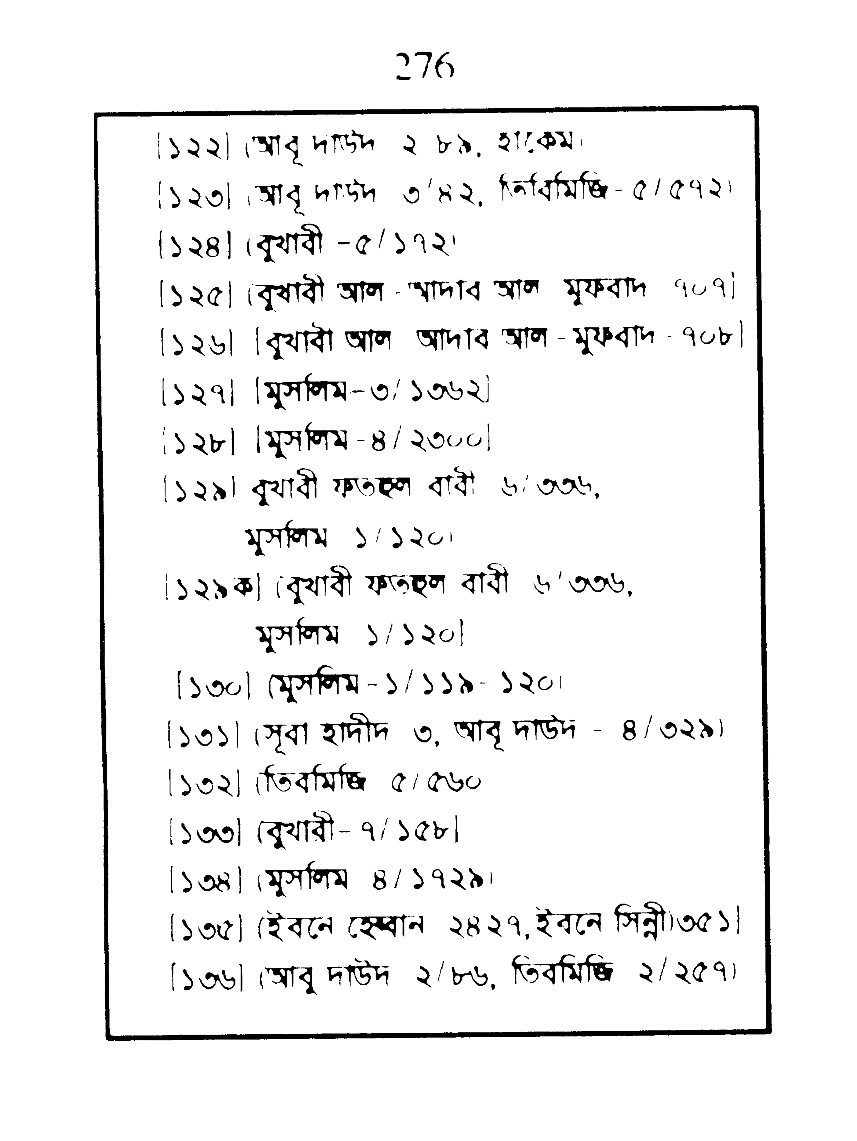 276
[১২২] (আবূ দাউদ ২ ৮৯, হাকেম)
[১২৩] (আবূ দাউদ ৩/৪২, তিরমিজি - ৫/৫৭২)
[১২৪] (বুখারী -৫/১৭২)
[১২৫] (বুখারী আল - আদাব আল মুফরাদ ৭০৭]
[১২৬] [বুখারী আল আদাব আল - মুফরাদ - ৭০৮]
[১২৭] [মুসলিম-৩/১৩৬২]
[১২৮] [মুসলিম -৪/২৩০০]
[১২৯] বুখারী ফতহুল বারী ৬/৩৩৬,
মুসলিম ১/১২০)
[১২৯ক] (বুখারী ফতহুল বারী ৬/৩৩৬,
মুসলিম ১/১২০]
[১৩০] (মুসলিম -১/১১৯- ১২০)
[১৩১] (সূরা হাদীদ ৩, আবূ দাউদ - ৪/৩২৯)
[১৩২] (তিরমিজি ৫/৫৬০
[১৩৩] (বুখারী- ৭/১৫৮]
[১৩৪] (মুসলিম ৪/১৭২৯)
[১৩৫] (ইবনে হেব্বান ২৪২৭, ইবনে সিন্নী)৩৫১]
[১৩৬] (আবু দাউদ ২/৮৬, তিরমিজি ২/২৫৭)